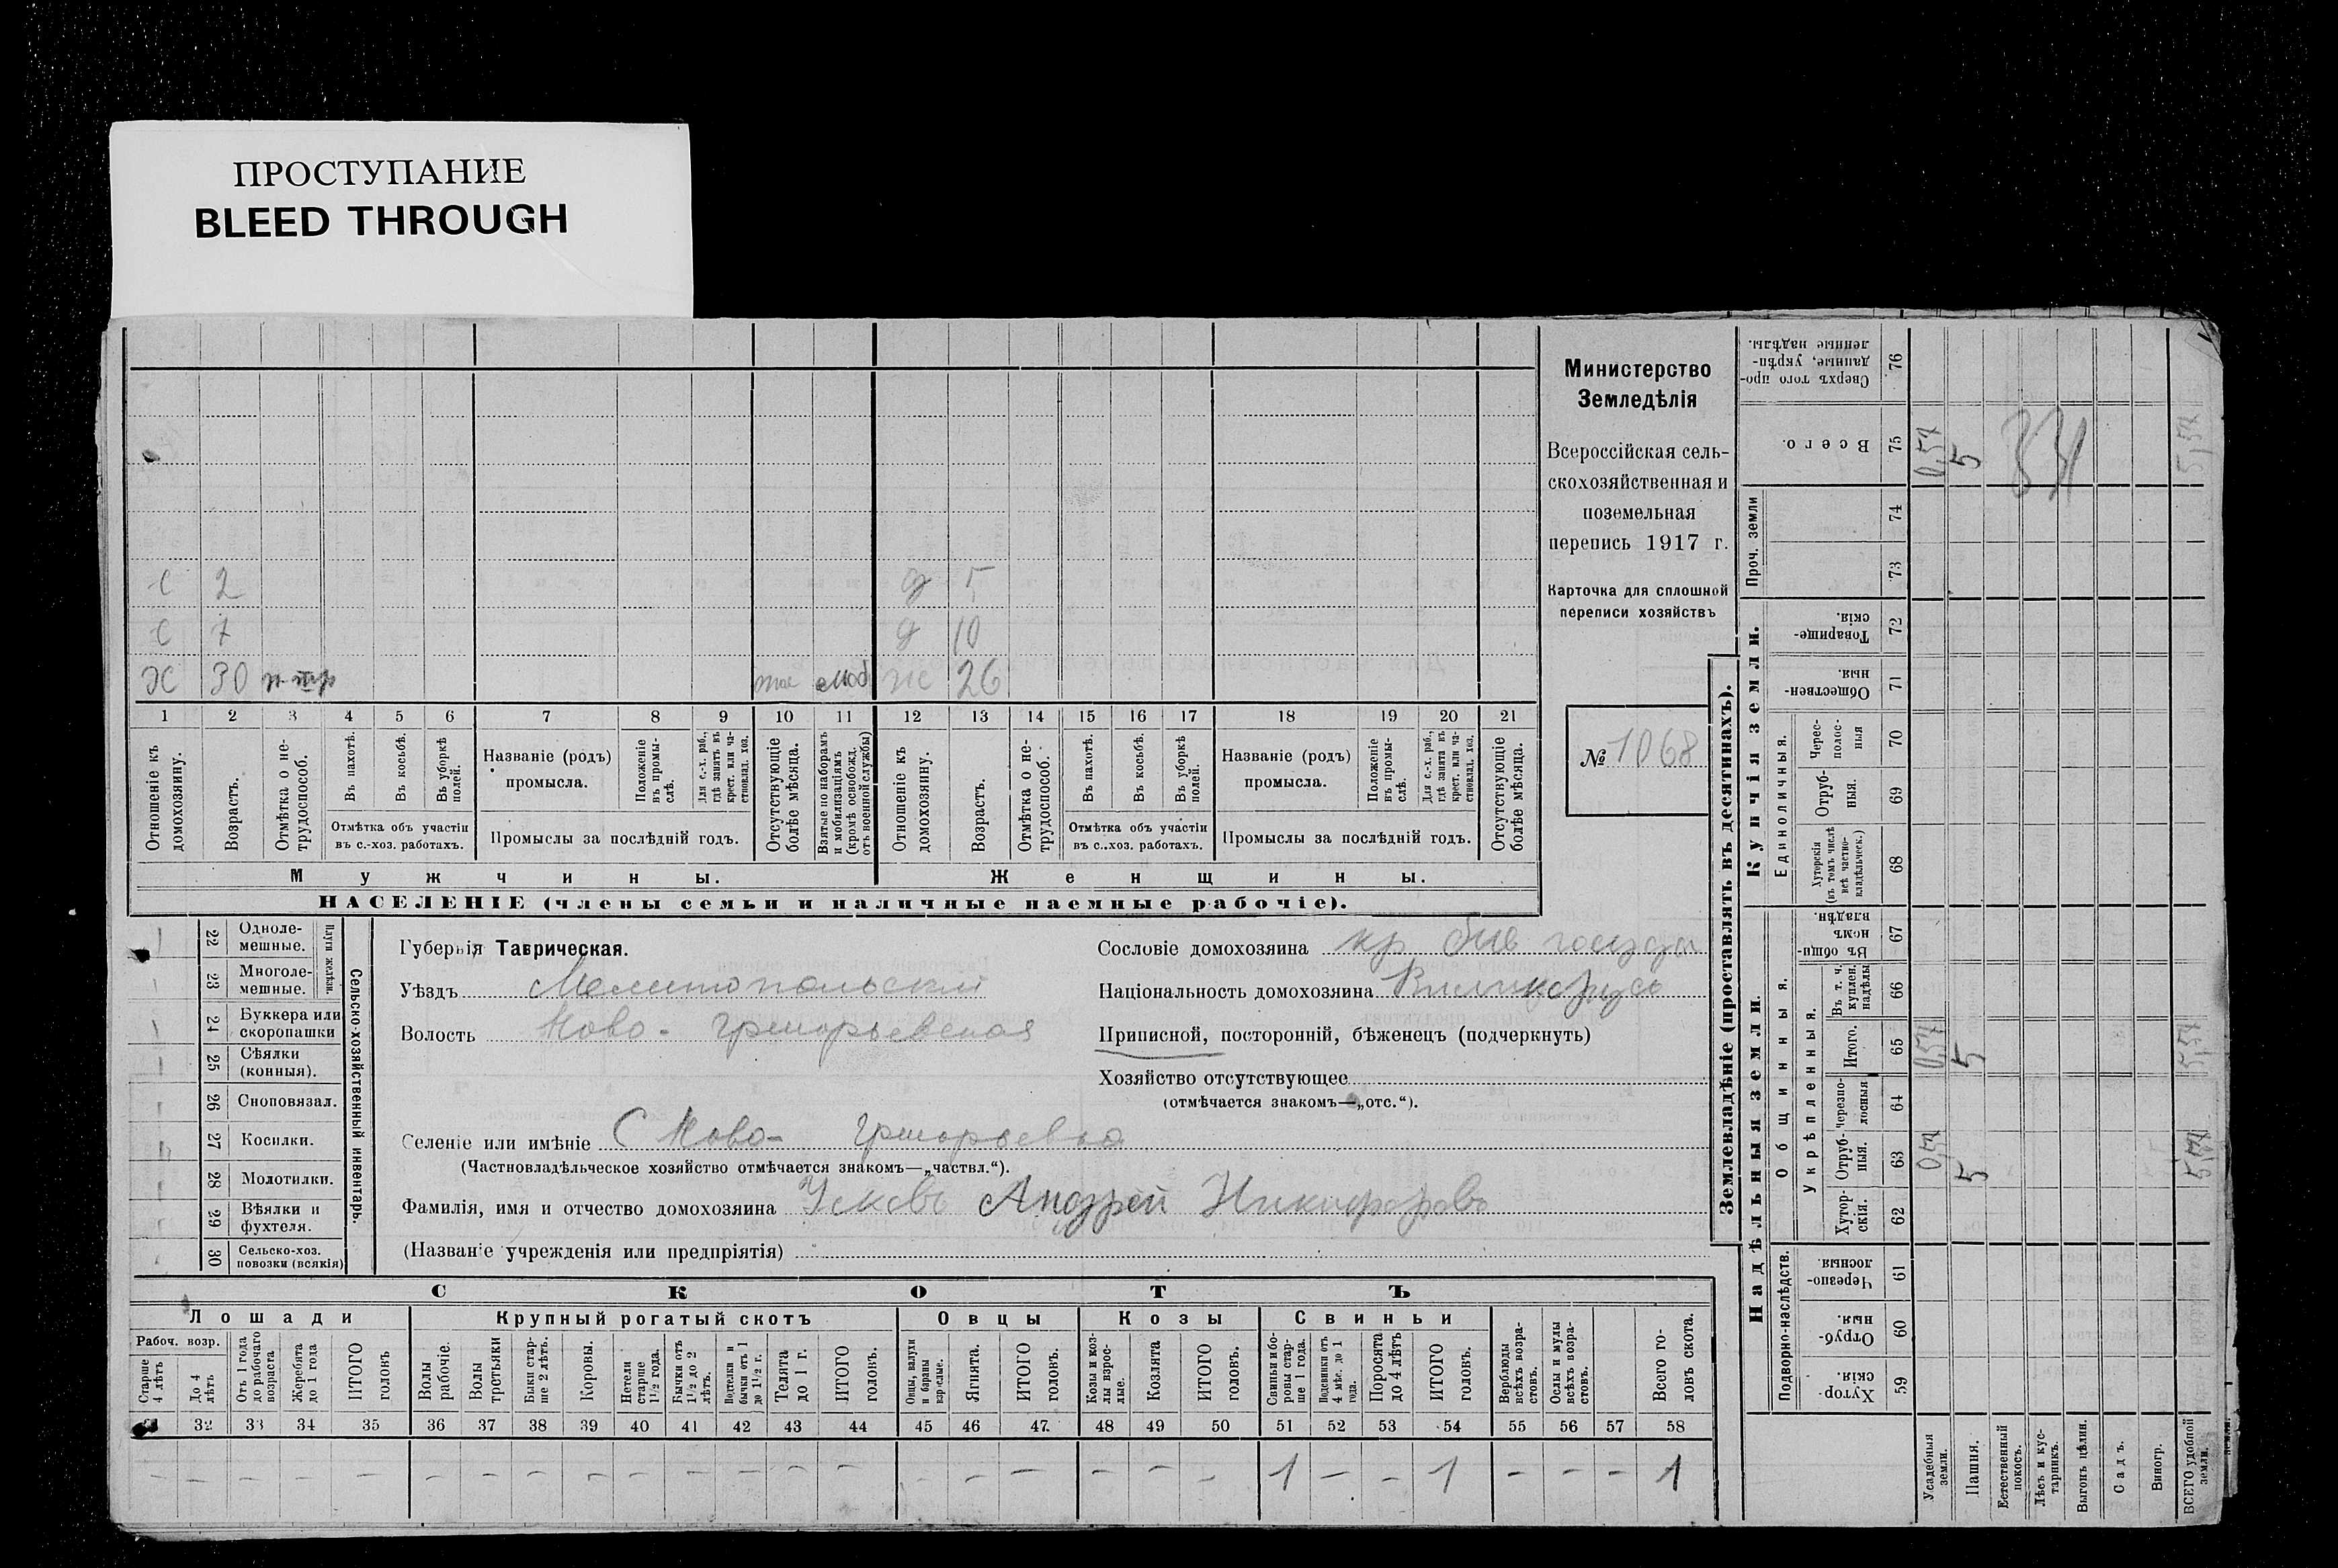 ПРОСТУПАНИЕ
BLEED THROUGH
С 2 д 5
С 7 д 10
Х 30 н тр моб ж 26
1 2 3 4 5 6 7 8 9 10 11 12 13 14 15 16 17 18 19 20 21
Отношеніе къ домохозяину.
Возрастъ.
Отмѣтка о не-трудоспособ.
Въ пахотѣ.
Въ косьбѣ.
Въ уборкѣ полей.
Отмѣтка объ участіи
въ с.-хоз. работахъ.
Названіе (родъ)
промысла.
Положеніе въ промы-слѣ.
Для с.-х. раб., гдѣ занятъ въ крест. или ча-стновлад. хоз.
Промыслы за послѣдній годъ.
Отсутствующіе болѣе мѣсяца.
Взятые по наборамъ и мобилизаціямъ (кромѣ освобожд. отъ военной службы)
Отношеніе къ домохозяину.
Возрастъ.
Отмѣтка о не-трудоспособ.
Въ пахотѣ.
Въ косьбѣ.
Въ уборкѣ полей.
Отмѣтка объ участіи
въ с..хоз. работахъ.
Названіе (родъ)
промысла.
Положеніе въ промы-слѣ.
Для с.-х. раб., гдѣ занята въ крест. или ча-стновлад. хоз.
Промыслы за послѣдній годъ.
Отсутствующіе болѣе мѣсяца.
Мужчины. Женщины.
НАСЕЛЕНІЕ (члены семьи и наличные наемные рабочіе).
Министерство
Земледѣлія
Всероссійская сель-
скохозяйственная и
поземельная
перепись 1917 г.
Карточка для сплошной
переписи хозяйствъ
№ 1068
22 Одноле-мешные.
23 Многоле-мешные.
Плуги желѣзн.
24 Буккера или скоропашки
25 Сѣялки (конныя).
26 Сноповязал.
27 Косилки.
28 Молотилки.
29 Вѣялки и фухтеля.
30 Сельско-хоз. повозки (всякія)
Сельско-хозяйственный инвентарь.
Губернія Таврическая.
Уѣздъ Мелитопольскій
Волость Ново-Григорьевская
Селеніе или имѣніе С Ново-Григорьевка
(Частновладѣльческое хозяйство отмѣчается знакомъ—„частвл.“).
Фамилія, имя и отчество домохозяина Усковъ Андрей Никифоровъ
(Названіе учрежденія или предпріятія)
Сословіе домохозяина кр бив
Національность домохозяина Великорусъ
Приписной, посторонній, бѣженец (подчеркнуть)
Хозяйство отсутствующее
(отмѣчается знакомъ—„отс.“).
СКОТЪ
Лошади Крупный рогатый скотъ Овцы Козы Свиньи
Рабоч. возр.
Старше 4 лѣтъ
До 4 лѣтъ
Отъ 1 года до рабочаго возраста
Жеребята до 1 года
ИТОГО головъ
Волы рабочіе.
Волы третьяки
Быки стар-ше 2 лѣтъ.
Коровы.
Нетели старше 1½ года.
Бычки отъ 1½ до 2 лѣтъ.
Подтелки и бычки отъ 1 до 1½ г.
Телята до 1 г.
ИТОГО головъ.
Овцы, валухи и бараны взрослые.
Ягнята.
ИТОГО головъ.
Козы и коз-лы взрос-лые.
Козлята
ИТОГО головъ.
Свиньи и бо-ровы стар-ше 1 года.
Подсвинки отъ 4 мѣс. до 1 года.
Поросята до 4 лѣтъ
ИТОГО головъ.
Верблюды всѣхъ возра-стовъ.
Ослы и мулы всѣхъ возра-стовъ.
Всего го-ловъ скота.
32 33 34 35 36 37 38 39 40 41 42 43 44 45 46 47. 48 49 50 51 52 53 54 55 56 57 58
– – – – – – – – – – – – – – – – – – – – 1 – – 1 – – – 1
Землевладѣніе (проставлять въ десятинахъ).
Надѣльныя земли. Купчія земли.
Проч. земли
Подворно-наслѣдств.
Общинныя.
Укрѣпленныя.
Единоличныя.
Сверхъ того про-данные, укрѣп-ленные надѣлы. 76
Всего. 75
74
73
Товарище-скія. 72
Обществен-ныя. 71
Черес-полос-ныя 70
Отруб-ныя. 69
Хуторскія (въ томъ числѣ всѣ частно-владѣльческ.) 68
Въ общин-номъ владѣн. 67
Въ т. ч. куплен. надѣлы 66
Итого. 65
Черезпо-лосныя 64
Отруб-ныя. 63
Хутор-скія. 62
Черезпо-лосныя. 61
Отруб-ныя. 60
Хутор-скія. 59
0,57 5 34 5,57
0,57 5 5,57
0,57 5 5,57
Усадебныя земли.
Пашня.
Естественный покосъ.
Лѣсъ и кус-тарникъ.
Выгонъ цѣлин.
Садъ.
Виногр.
ВСЕГО удобной земли.